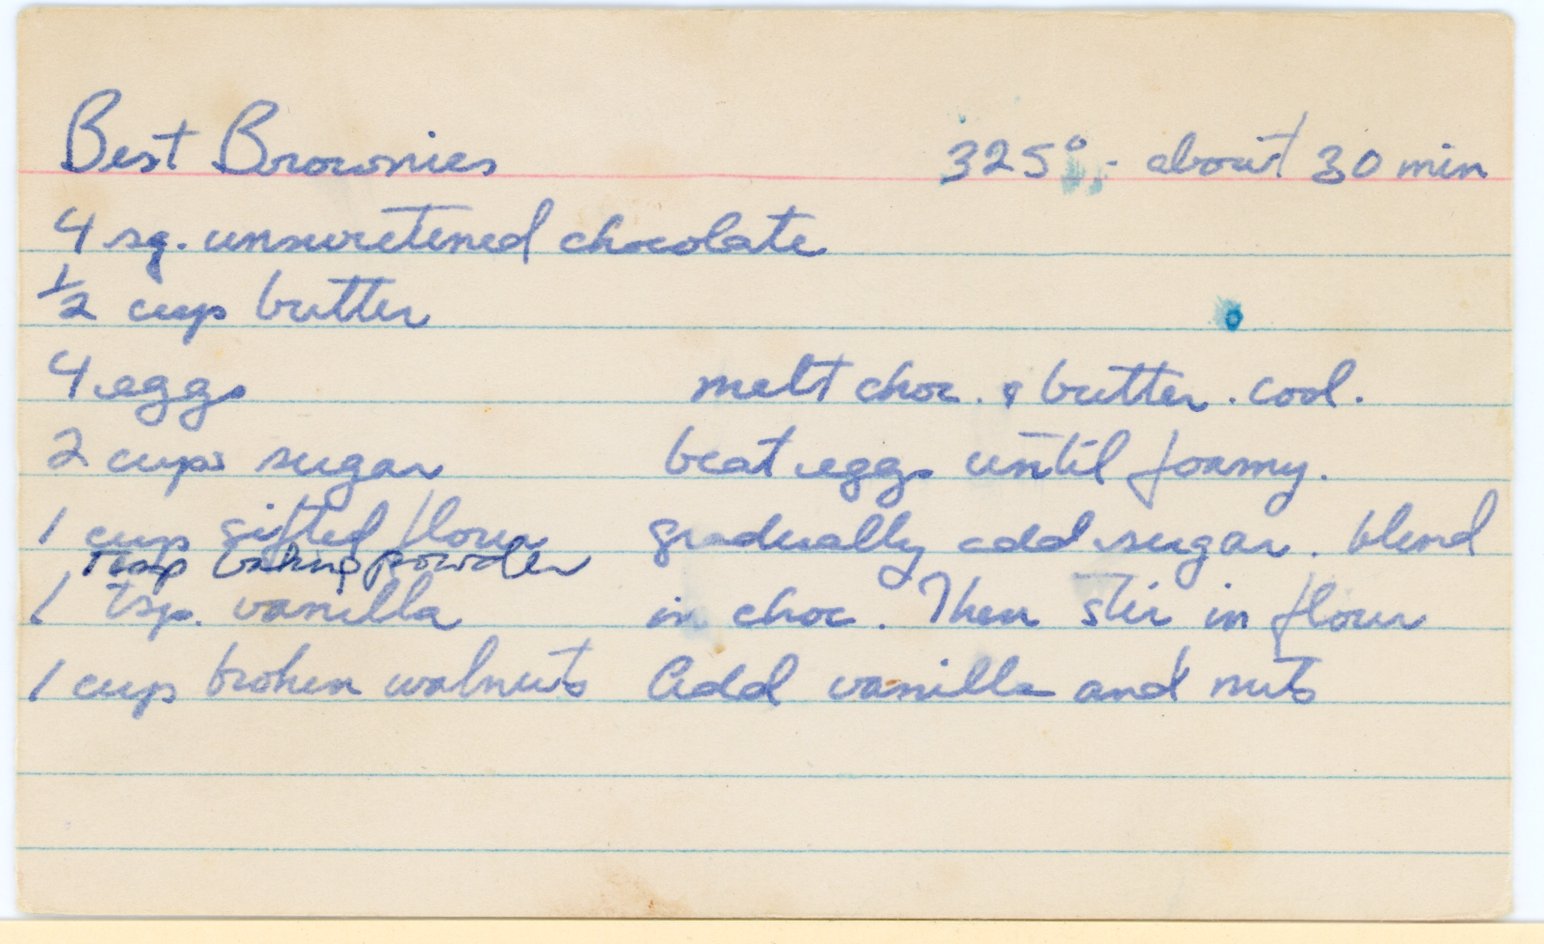 Best Brownies 325° - about 30 min
4 sq. unsweetened chocolate
½ cup butter
4 eggs
2 cups sugar
1 cup sifted flour
1 tsp baking powder
1 tsp. vanilla
1 cup broken walnuts
melt choc. & butter. cool.
beat eggs until foamy.
gradually add sugar. blend
in choc. Then stir in flour
Add vanilla and nuts